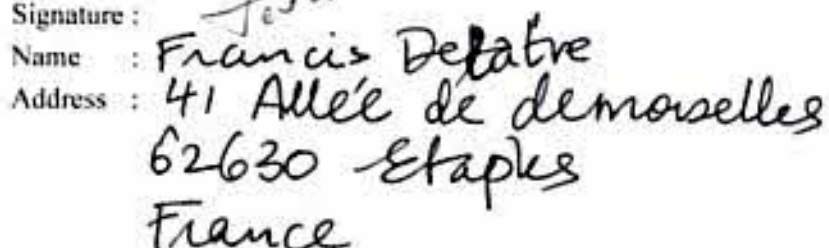 Signature :
Name : Francis Delatre
Address : 41 Allée de demoiselles
62630 Etaples
France